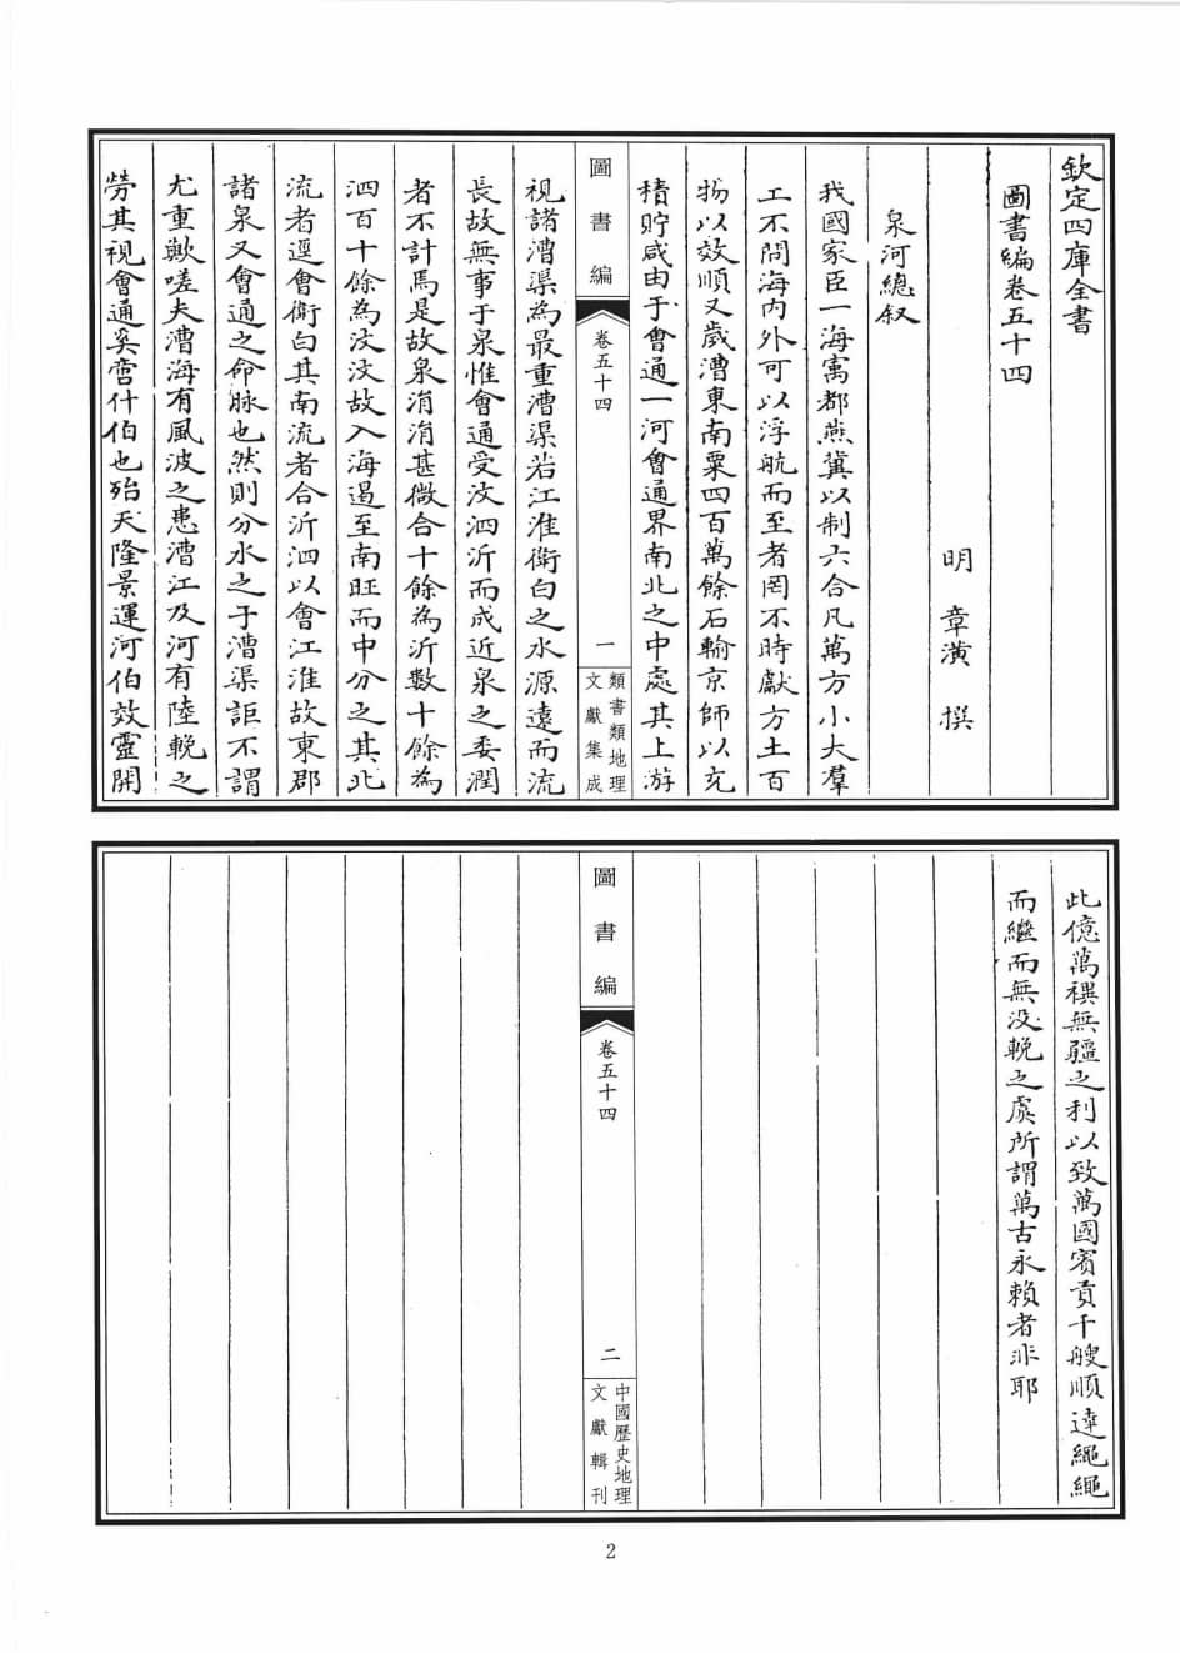 欽定四庫全書
圖書編卷五十四
明 章潢 撰
泉河總叙
我國家臣一海寓都燕冀以制六合凡萬方小大羣
工不問海内外可以浮航而至者罔不時獻方土百
物以效順又歲漕東南粟四百萬餘石輸京師以充
積貯咸由于會通一河會通界南北之中處其上游
圖書編
卷五十四
一
類書類地理
文獻集成
視諸漕渠為最重漕渠若江淮衛白之水源遠而流
長故無事于泉惟會通受汶泗沂而成近泉之委潤
者不計馬是故泉涓涓甚微合十餘為沂數十餘為
泗百十餘為汶汶故入海遏至南旺而中分之其北
流者逕會衛白其南流者合沂泗以會江淮故東郡
諸泉又會通之命脉也然則分水之于漕渠詎不謂
尤重歟嗟夫漕海有風波之患漕江及河有陸輓之
勞其視會通奚啻什伯也殆天隆景運河伯效靈開
此億萬禩無疆之利以致萬國賓貢千艘順達繩繩
而繼而無没輓之虞所謂萬古永賴者非耶
圖書編
卷五十四
二
中國歷史地理
文獻輯刊
2